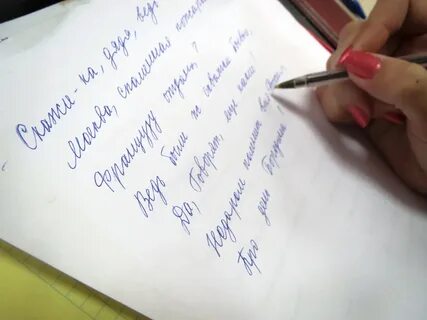 Скажи-ка, дядя, ведь
Москва, спаленная пожаром
Французу отдана?
Ведь были ж схватки боевые,
Да, говорят, еще какие!
Недаром помнит вся
Про день Бородина